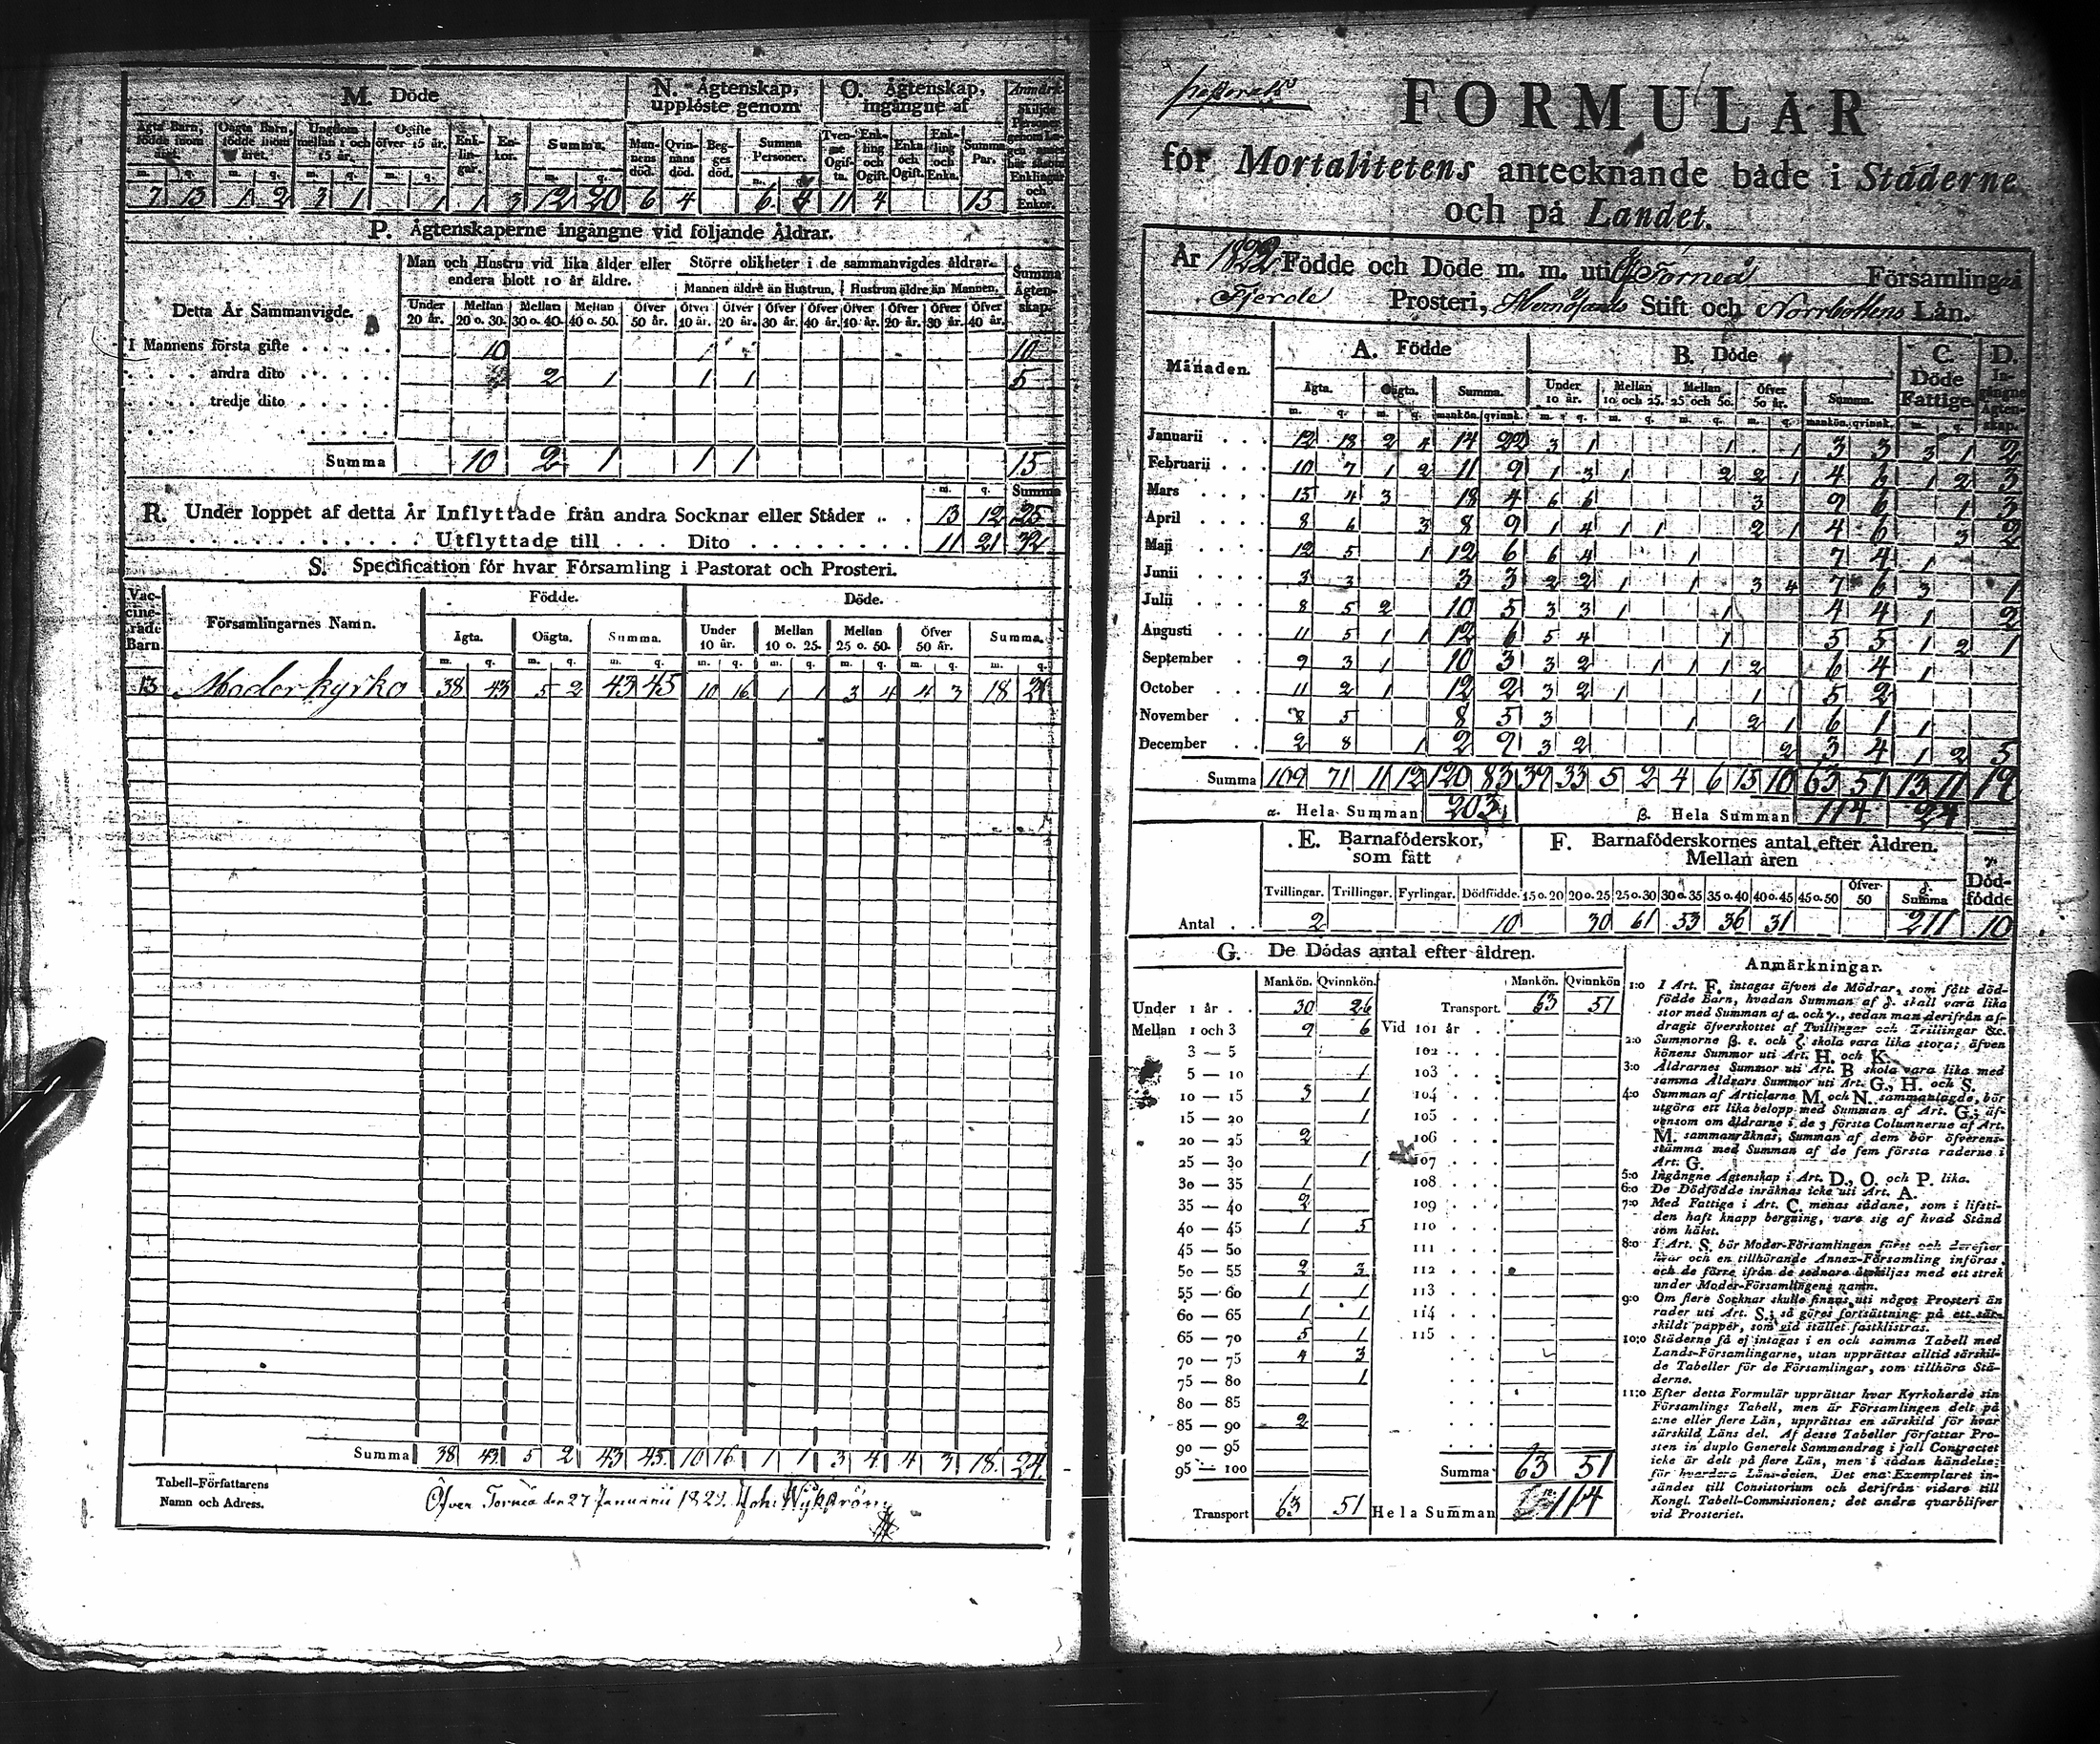 M. Döde
N. Ägtenskap, upplöste genom
O. Ägtenskap, ingångne af
Anmärk.
Ägta Barn, födde inom året.
Oägta Barn, födde inom året.
Ungdom mellan 1 och 15 år.
Ogifte öfver 15 år.
Enklingar.
Enkor.
Summa.
Mannens död.
Qvinnans död.
Begges död.
Summa Personer.
Tvenne Ogifta.
Enkling och Ogift.
Enka och Ogift.
Enkling och Enka.
Summa Par.
m. q. m. q. m. q. m. q. m. q. m. q.
7 13 1 2 3 1 1 1 3 12 20 6 4 6 4 11 4 15
P. Ägtenskaperne ingångne vid följande Åldrar.
Detta År Sammanvigde.
Man och Hustru vid lika ålder eller endera blott 10 år äldre.
Större olikheter i de sammanvigdes åldrar.
Mannen äldre än Hustrun. Hustrun äldre än Mannen.
Summa Ägtenskap.
Under 20 år. Mellan 20 o. 30. Mellan 30 o. 40. Mellan 40 o. 50. Öfver 50 år. Öfver 10 år. Öfver 20 år. Öfver 30 år. Öfver 40 år. Öfver 10 år. Öfver 20 år. Öfver 30 år. Öfver 40 år.
I Mannens första gifte . . . . . 10 10
. . . . andra dito . . . . . 2 1 1 1 5
. . . . tredje dito . . . . .
Summa 10 2 1 1 1 15
m. q. Summa
R. Under loppet af detta År Inflyttade från andra Socknar eller Städer . . 13 12 25
Utflyttade till . . . Dito . . . . . . . 11 21 32
S. Specification för hvar Församling i Pastorat och Prosteri.
Vaccinerade Barn.
Församlingarnes Namn.
Födde.
Döde.
Ägta. Oägta. Summa. Under 10 år. Mellan 10 o. 25. Mellan 25 o. 50. Öfver 50 år. Summa.
m. q. m. q. m. q. m. q. m. q. m. q. m. q. m. q.
13 Moderkyrko 38 43 5 2 43 45 10 16 1 1 3 4 4 3 18 24
Summa 38 43 5 2 43 45 10 16 1 1 3 4 4 3 18 24
Tabell-Författarens
Namn och Adress.
Öfver Torneå den 27 Januarii 1823.
FORMULÄR
för Mortalitetens antecknande både i Städerne
och på Landet.
År 1822 Födde och Döde m. m. uti Öf Torneå Församling i
Fjerde Prosteri, Hernösands Stift och Norrbottens Län.
Månaden.
A. Födde
B. Döde
C. Döde Fattige.
D. Ingångne Ägtenskap.
Ägta. Oägta. Summa. Under 10 år. Mellan 10 och 25. Mellan 25 och 50. Öfver 50 år. Summa.
m. q. m. q. mankön. qvinnk. m. q. m. q. m. q. m. q. mankön. qvinnk. m. q.
Januarii . . . 12 18 2 4 14 22 3 1 1 1 3 3 3 1 2
Februarii . . . 10 7 1 2 11 9 1 3 1 2 2 1 4 6 1 2 3
Mars . . . . 15 4 3 18 4 6 6 3 9 6 1 3
April . . . . 8 6 3 8 9 1 4 1 1 2 1 4 6 3 2
Maji . . . . 12 5 1 12 6 6 4 1 7 4 1
Junii . . . . 3 3 3 3 2 2 1 1 3 4 7 6 3 1
Julii . . . . 8 5 2 10 5 3 3 1 1 4 4 1 2
Augusti . . . 11 5 1 1 12 6 5 4 1 5 5 1 2 1
September . . 9 3 1 10 3 3 2 1 1 1 2 6 4 1
October . . 11 2 1 12 2 3 2 1 1 5 2
November . . 8 5 8 5 3 1 2 1 6 1 1
December . . 2 8 1 2 9 3 2 2 3 4 1 2 5
Summa 109 71 11 12 120 83 39 33 5 2 4 6 15 10 63 51 13 11 19
α. Hela Summan 203 β. Hela Summan 114 24
E. Barnaföderskor, som fått
F. Barnaföderskornes antal efter Åldren.
Mellan åren
γ. Dödfödde
Tvillingar. Trillingar. Fyrlingar. Dödfödde. 15 o. 20 20 o. 25 25 o. 30 30 o. 35 35 o. 40 40 o. 45 45 o. 50 Öfver 50 δ. Summa
Antal . . 2 10 30 61 53 36 31 211 10
G. De Dödas antal efter åldren.
Mankön. Qvinnkön. Mankön. Qvinnkön
Under 1 år . . 30 26 Transport 63 51
Mellan 1 och 3 9 6 Vid 101 år . .
3 — 5 102 . . .
5 — 10 1 103 . . .
10 — 15 3 1 104 . . .
15 — 20 1 105 . . .
20 — 25 2 106 . . .
25 — 30 1 107 . . .
30 — 35 1 108 . . .
35 — 40 2 109 . . .
40 — 45 1 5 110 . . .
45 — 50 111 . . .
50 — 55 2 3 112 . . .
55 — 60 1 1 113 . . .
60 — 65 1 1 114 . . .
65 — 70 5 1 115 . . .
70 — 75 4 3
75 — 80 1
80 — 85
85 — 90 2
90 — 95
95 — 100 Summa 63 51
Transport 63 51 Hela Summan 114
Anmärkningar.
1:o I Art. F. intagas äfven de Mödrar, som fått död-
födde Barn, hvadan Summan af δ. skall vara lika
stor med Summan af α. och γ., sedan man derifrån af-
dragit öfverskottet af Tvillingar och Trillingar &c.
2:o Summorne β. ε. och ζ. skola vara lika stora; äfven
könens Summor uti Art. H. och K.
3:o Åldrarnes Summor uti Art. B skola vara lika med
samma Åldrars Summor uti Art. G., H. och S.
4:o Summan af Articlarne M. och N. sammanlagde, bör
utgöra ett lika belopp med Summan af Art. G.; äf-
vensom om åldrarne i de 3 första Columnerne af Art.
M. sammanräknas, Summan af dem bör öfverens-
stämma med Summan af de fem första raderne i
Art. G.
5:o Ingångne Ägtenskap i Art. D., O. och P. lika.
6:o De Dödfödde inräknas icke uti Art. A.
7:o Med Fattige i Art. C. menas sådane, som i lifsti-
den haft knapp bergning, vare sig af hvad Stånd
som hälst.
8:o I Art. S. bör Moder-Församlingen först och derefter
hvar och en tillhörande Annex-Församling införas,
och de förre ifrån de sednare åtskiljas med ett strek
under Moder-Församlingens namn.
9:o Om flere Socknar skulle finnas uti något Prosteri än
rader uti Art. S.; så göres fortsättning på ett sär-
skildt papper, som vid stället fastklistras.
10:o Städerne få ej intagas i en och samma Tabell med
Lands-Församlingarne, utan upprättas alltid särskil-
de Tabeller för de Församlingar, som tillhöra Stä-
derne.
11:o Efter detta Formulär upprättar hvar Kyrkoherde sin
Församlings Tabell, men är Församlingen delt på
2:ne eller flere Län, upprättas en särskild för hvar
särskild Läns del. Af desse Tabeller författar Pro-
sten in duplo Generelt Sammandrag i fall Contractet
icke är delt på flere Län, men i sådan händelse;
för hvardera Läns-delen. Det ena Exemplaret in-
sändes till Consistorium och derifrån vidare till
Kongl. Tabell-Commissionen; det andra qvarblifver
vid Prosteriet.